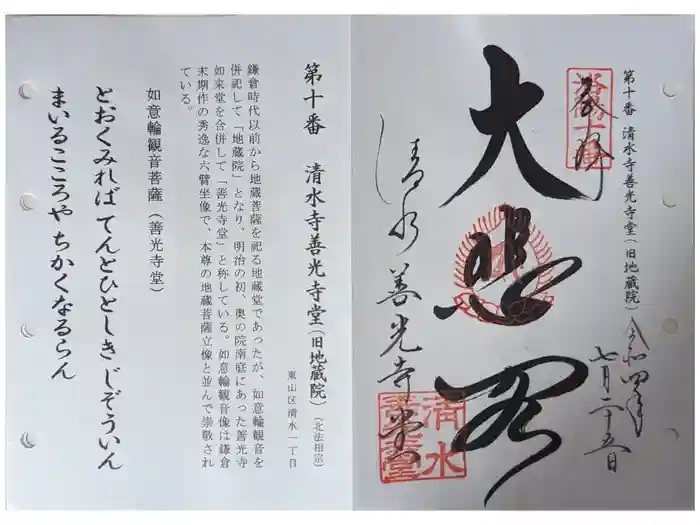 第十番 清水寺善光寺堂（旧地蔵院）
奉拝
大悲殿
清水善光寺堂
令和四年
七月二十五日
洛陽十番
清水善光寺堂
第十番 清水寺善光寺堂（旧地蔵院）（北法相宗）
東山区清水一丁目
鎌倉時代以前から地蔵菩薩を祀る地蔵堂であったが、如意輪観音を
併祀して「地蔵院」となり、明治の初、奥の院南庭にあった善光寺
如来堂を合併して「善光寺堂」と称している。如意輪観音像は鎌倉
末期作の秀逸な六臂坐像で、本尊の地蔵菩薩立像と並んで崇敬され
ている。
如意輪観音菩薩（善光寺堂）
とおくみれば てんとひとしき じぞういん
まいるこころや ちかくなるらん